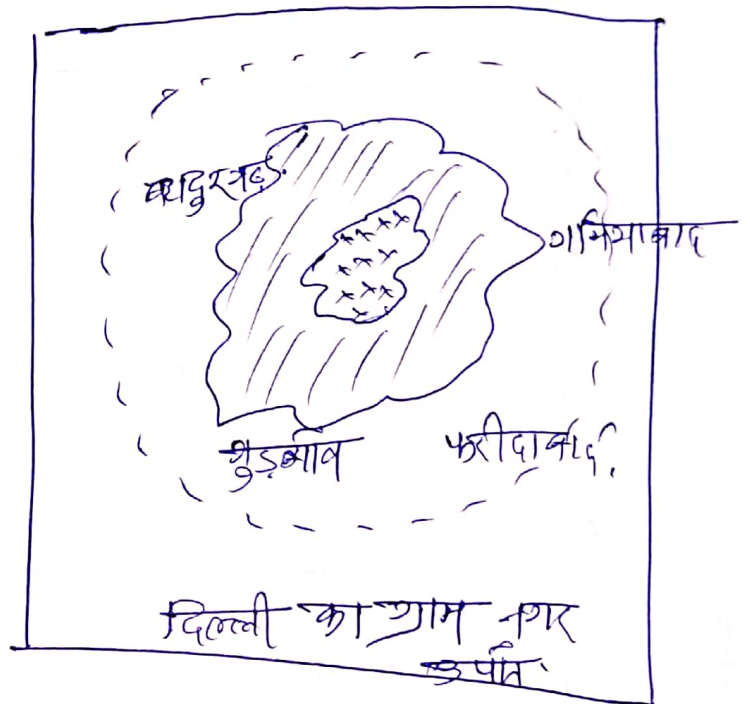 बहादुरगढ़
गाजियाबाद
गुड़गांव
फरीदाबाद
दिल्ली का ग्राम नगर
उपांत